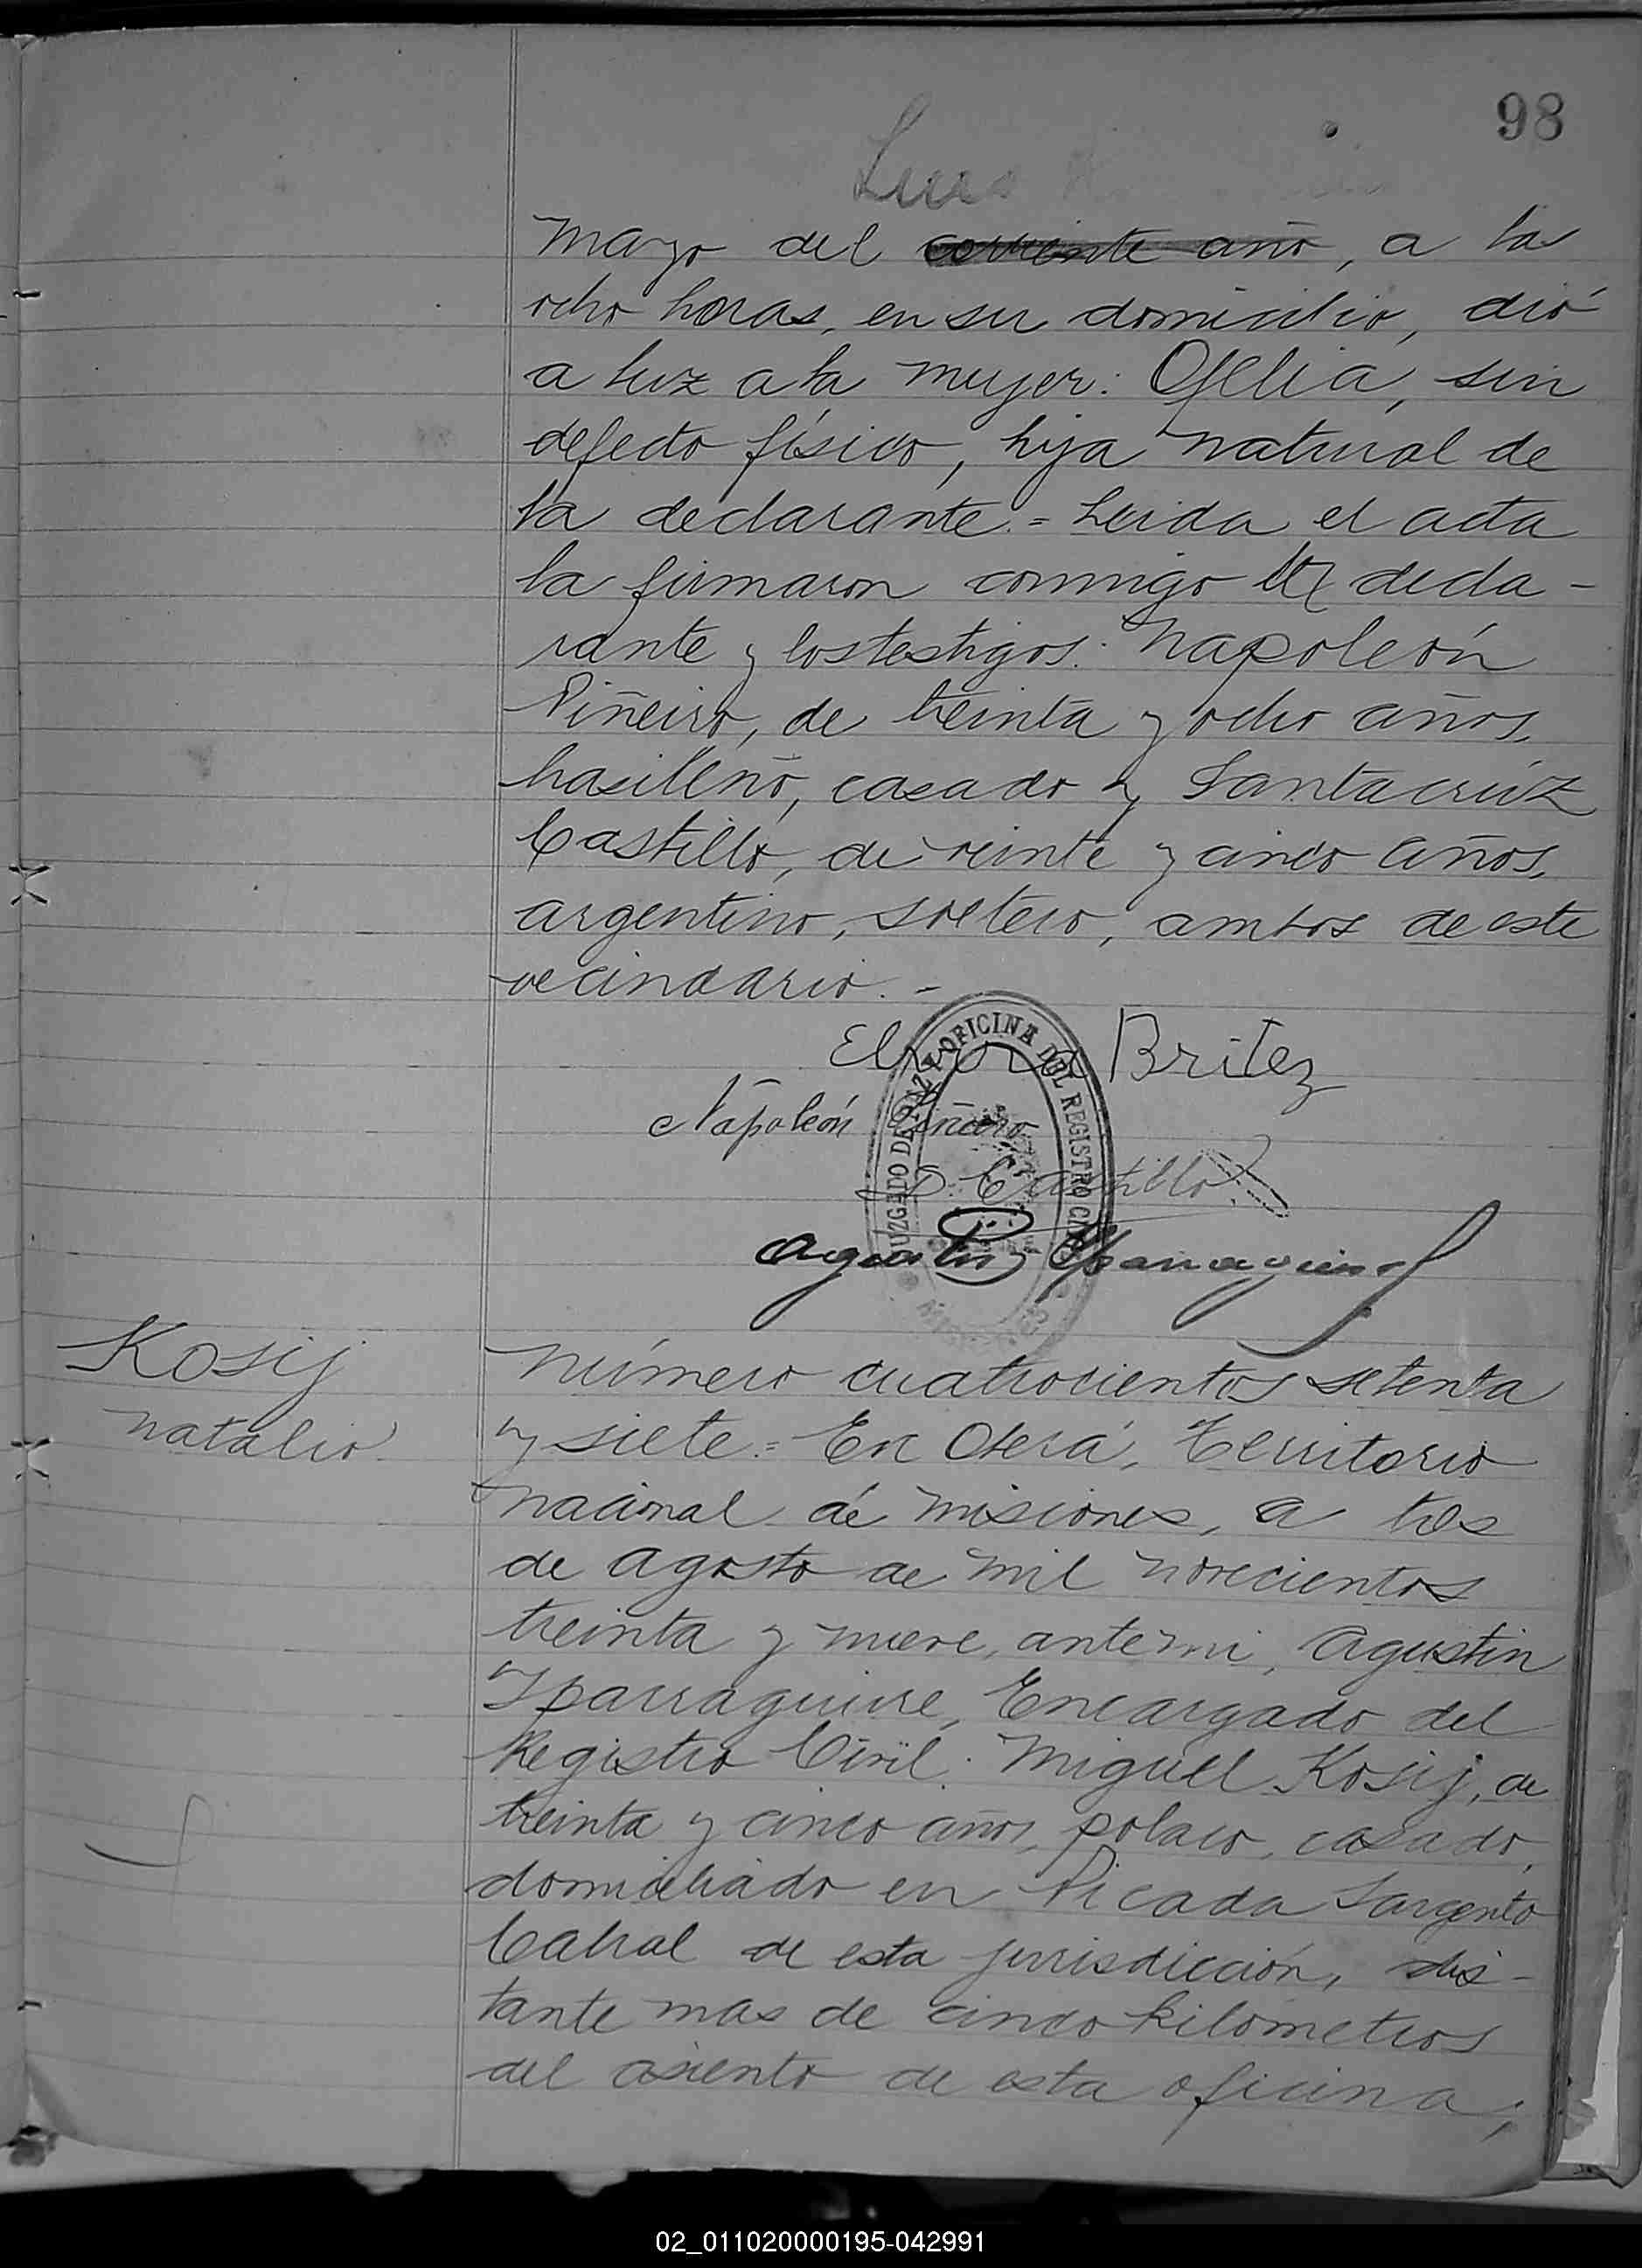 98
Luis
Mayo del corriente año, a las
ocho horas, en su domicilio, dió
a luz a la mujer: Ofelia, sin
defecto físico, hija natural de
la declarante.= Leida el acta
la firmaron conmigo la decla-
rante y los testigos: Napoleón
Piñeiro, de treinta y ocho años,
brasileño, casado y Santacrúz
Castillo, de veinte y cinco años,
argentino, soltero, ambos de este
vecindario.-
Elvira Britez
Napoleón Piñeiro
S. Castillo
Agustin Yparraguirre
JUZGADO DE PAZ Y OFICINA DEL REGISTRO CIVIL
MISIONES
Kosij
Natalio
Número cuatrocientos setenta
y siete.= En Oberá, Territorio
Nacional de Misiones, a tres
de Agosto de mil novecientos
treinta y nueve, ante mi, Agustin
Yparraguirre, Encargado del
Registro Civil: Miguel Kosij, de
treinta y cinco años, polaco, casado,
domiciliado en Picada Sargento
Cabral de esta jurisdicción, dis-
tante mas de cinco kilometros
del asiento de esta oficina;
02_011020000195-042991